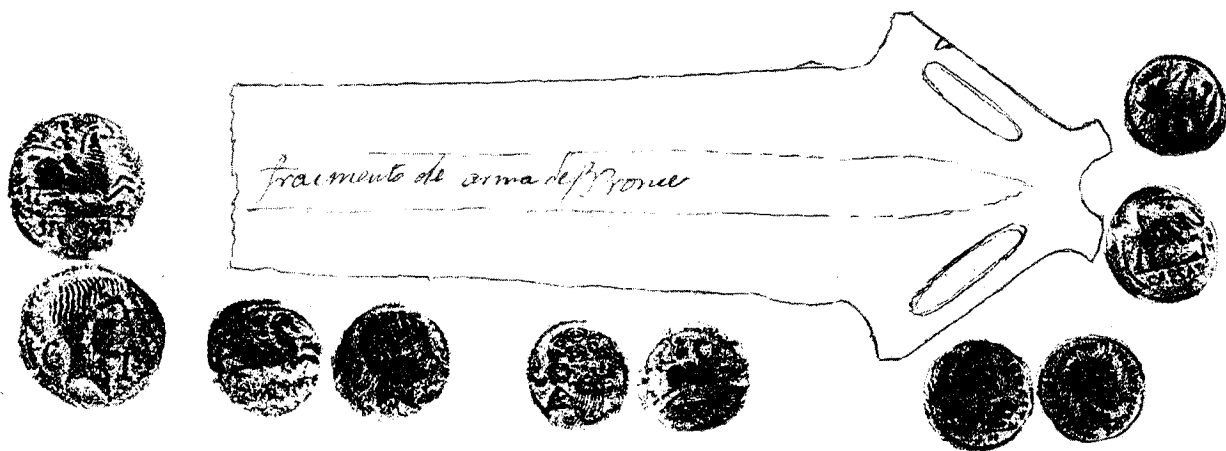 fracmento de arma de Bronce